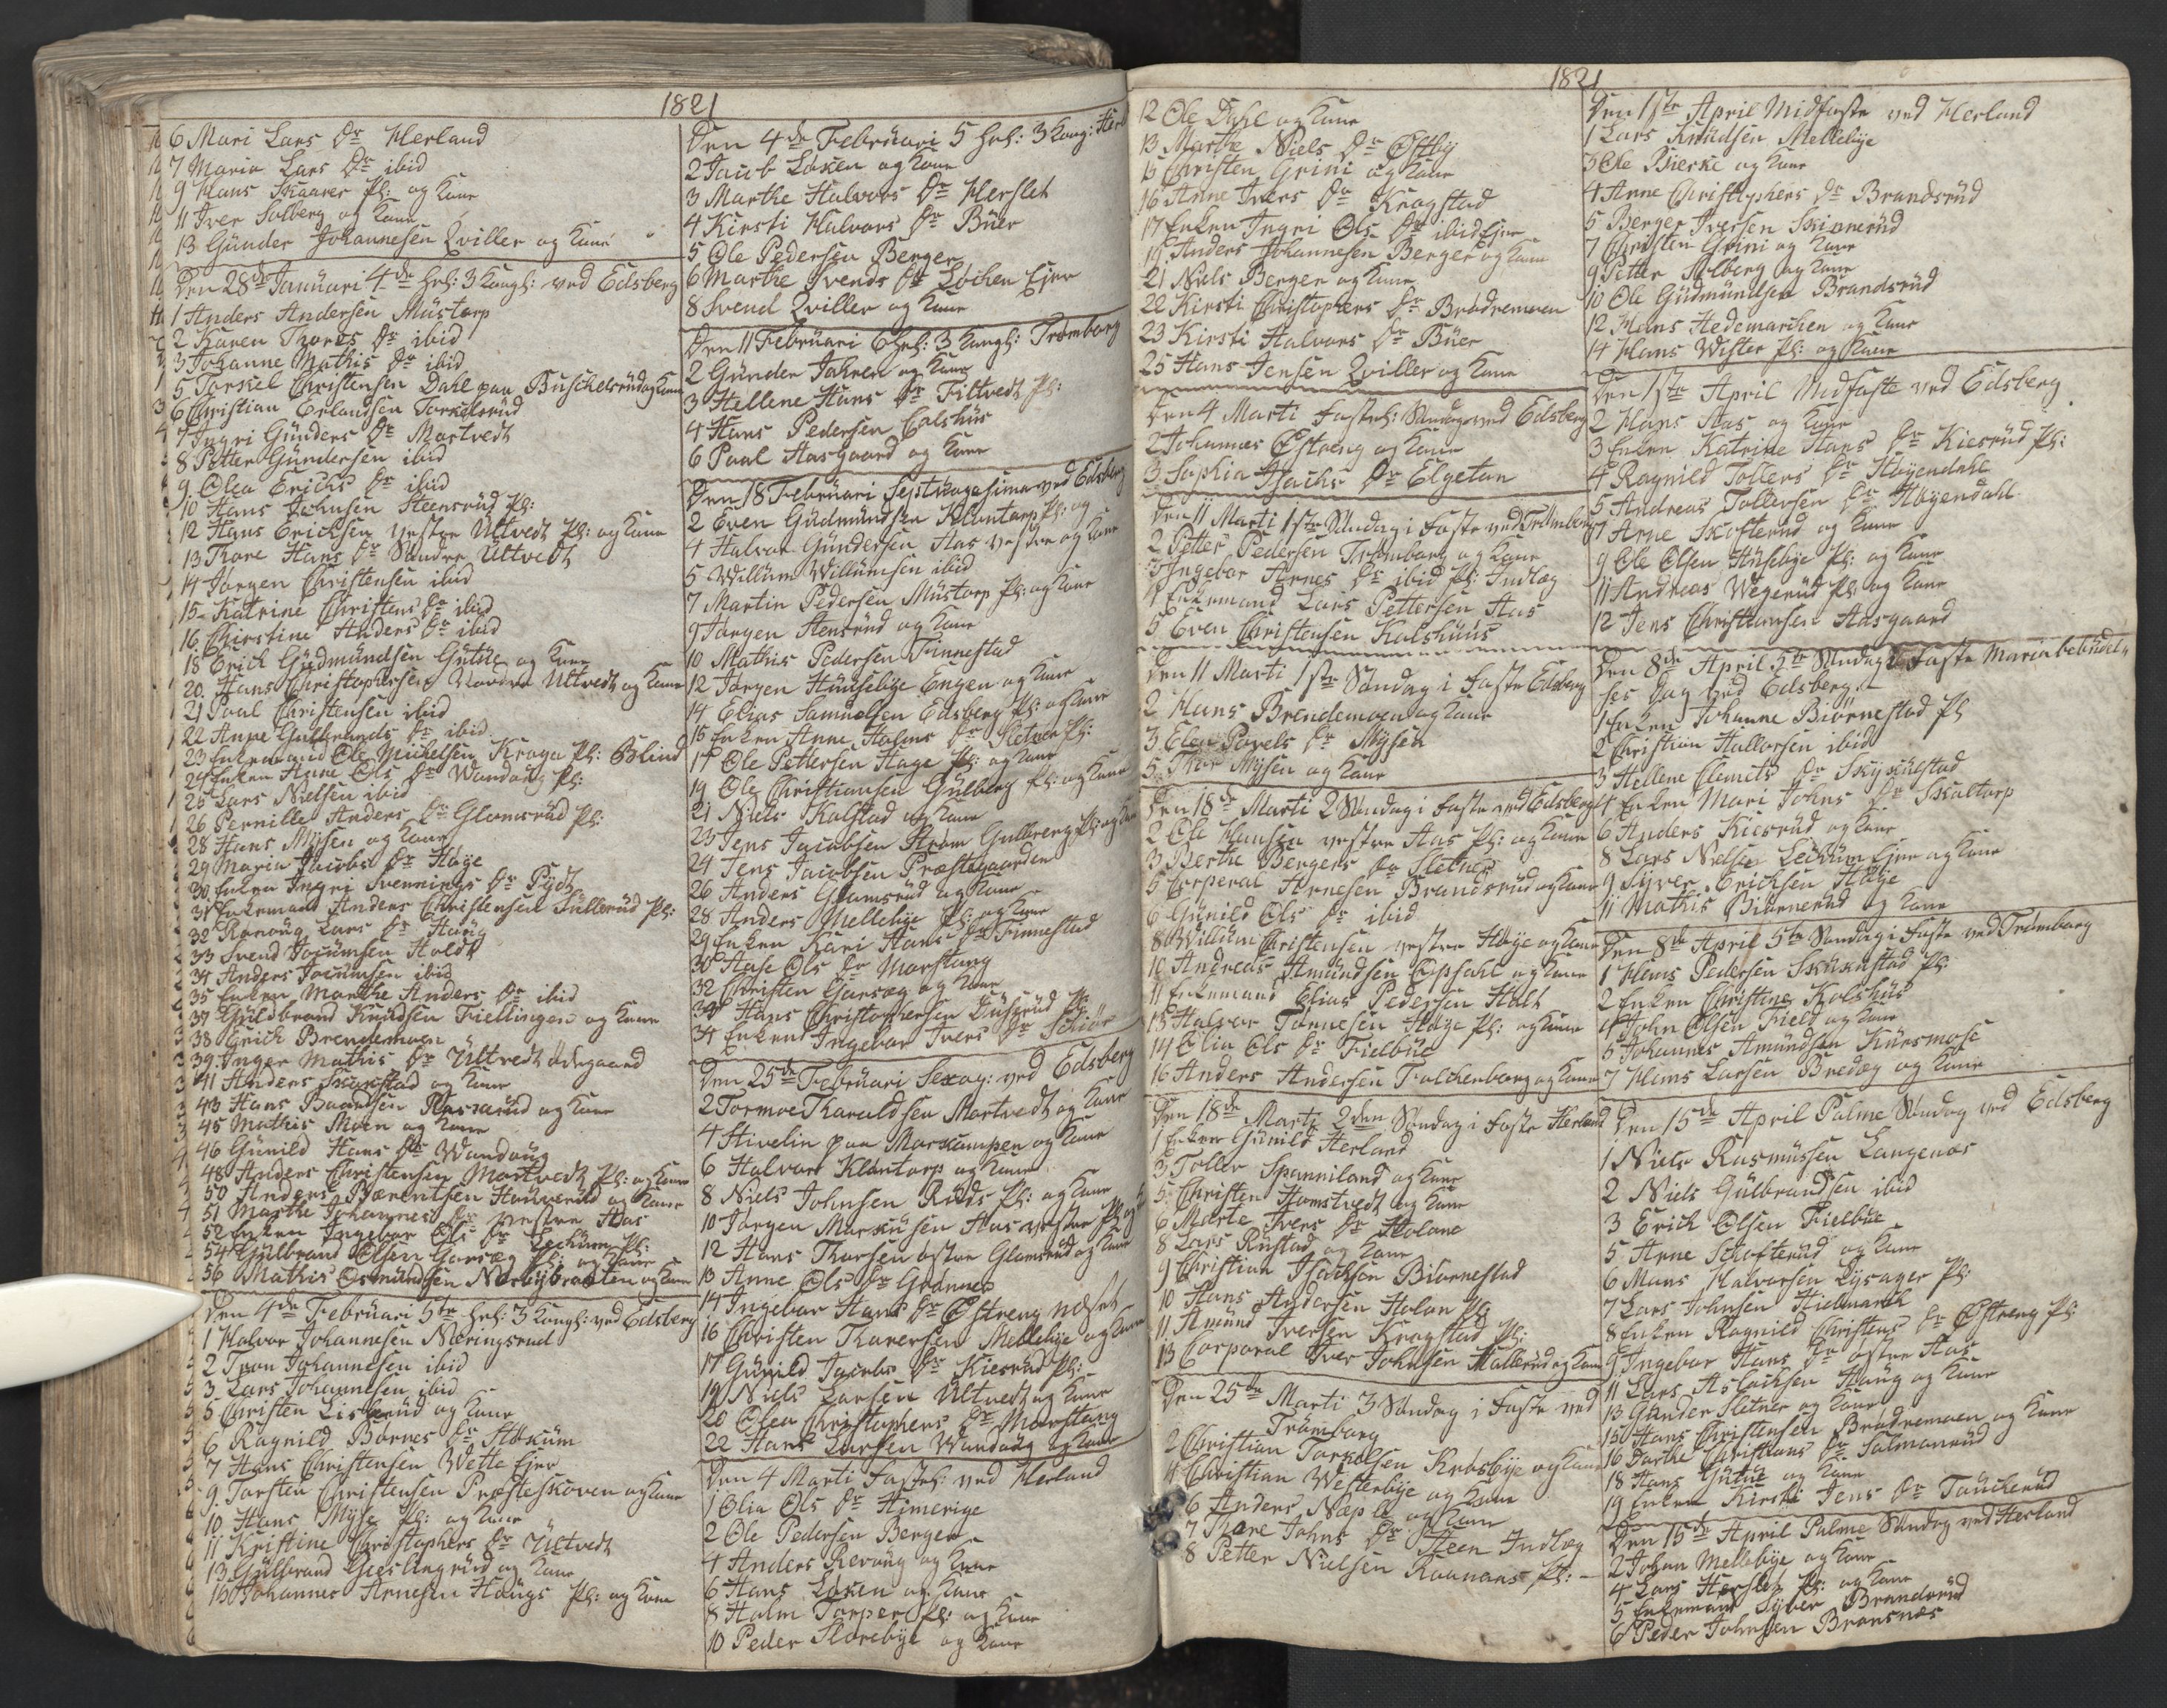 1821
6 Mari Lars Dr Herland
7 Maria Lars Dr ibid
9 Hans Skaarer Pl: og Kone
11 Iver Solberg og Kone
13 Gúnder Johannesen Qviller og Kone
Den 28de Januari 4de hel: 3 Kongl: ved Edsberg
1 Anders Andersen Mústorp
2 Karen Thores Dr ibid
3 Johanne Mathis Dr ibid
5 Torkel Christensen Dahl paa Buschelsrúd og Kone
6 Christian Erlandsen Torkelsrúd
7 Ingri Gúnders Dr Martvedt
8 Petter Gúndersen ibid
9 Olea Erichs Dr ibid
10 Hans Johnsen Steensrúd Pl:
12 Hans Erichsen vestre Ultvedt Pl: og Kone
13 Thore Hans Dr Søndre Ultvedt
14 Jørgen Christensen ibid
15 Katrine Christens Dr ibid
16 Christine Anders Dr ibid
18 Erich Gúdmúndsen Gútúe og Kone
20 Hans Christophersen Nordre Ultvedt og Kone
21 Poul Christensen ibid
22 Anne Gulbrands Dr ibid
23 Enkemand Ole Michelsen Kraga Pl: Blind
24 Enken Anne Ols Dr Wandúng Pl:
25 Lars Nielsen ibid
26 Pernille Anders Dr Glomsrúd Pl:
28 Hans Mysen og Kone
29 Maria Jacobs Dr Høye
30 Enken Ingri Svennings Dr Pydt
31 Enkemand Anders Christensen Súllerúd Pl:
32 Ranoúg Lars Dr Haúg
33 Svend Jocúmsen Holdt
34 Anders Jocúmsen ibid
35 Enken Marthe Anders Dr ibid
37 Gúldbrand Knúdsen Fiellingen og Kone
38 Erich Brendemoen
39 Inger Mathis Dr Ultvedt ødegaard
41 Anders Skúkstad og Kone
43 Hans Baardsen og Kone
45 Mathis Moen og Kone
46 Gúnild Hans Dr Wandúng
48 Anders Christensen Martvedt Pl: og Kone
50 Anders Bærentsen og Kone
51 Marthe Johannes Dr vestre Aas
52 Enken Ingebor Ols Dr Lechúm Pl:
54 Gúlbrand Olsen Garsæg Pl: og Kone
56 Mathis Osmúndsen Narbÿbraaten og Kone
Den 4de Februari 5te hel: 3 Kongl: ved Edsberg
1 Halvor Johannesen Næringsrud
2 Tron Johannesen ibid
3 Lars Johannesen ibid
5 Christen Lisberúd og Kone
6 Ragnild Børnes Dr Slokúm
7 Hans Christensen Wette Ejer
9 Torsten Christensen Præsteskoven og Kone
10 Hans Myse Pl: og Kone
11 Kristine Christophers Dr Ultvedt
13 Gúlbrand Gieslingrúd og Kone
15 Johannes Arnesen Haúgs Pl: og Kone
Den 4de Februari 5 hel: 3 Kong: Herl
2 Jacob Løken og Kone
3 Marthe Halvors Dr Herslet
4 Kirsti Halvors Dr Búer
5 Ole Pedersen Berger
6 Marthe Svends Dr Løchen Ejer
8 Svend Qviller og Kone
Den 11 Februari 6 hel: 3 Kongl: Trømborg
2 Gúnder Jahren og Kone
3 Hellene Hans Dr Filtvedt Pl:
4 Hans Pedersen Calshús
6 Poul Aasgaard og Kone
Den 18 Februari Septuagesima ved Edsberg
2 Even Gúdmúndsen Kluntorp Pl: og
4 Halvor Gúndersen Aas vestre og Kone
5 Willúm Willúmsen ibid
7 Martin Pedersen Mústorp Pl: og Kone
9 Jørgen Stensrúd og Kone
10 Mathis Pedersen Finnestad
12 Jørgen Húúsebye Engen og Kone
14 Elias Samúelsen Edsberg Pl: og Kone
15 Enken Anne Halms Dr Sletner Pl:
17 Ole Pettersen Hage Pl: og Kone
19 Ole Christiansen Gúlberg Pl: og Kone
21 Niels Kalstad og Kone
23 Jens Jacobsen Strøm Gulberg Pl: og Kone
24 Jens Jacobsen Præstegaarden
26 Anders Glomsrúd og Kone
28 Anders Mellebye Pl: og Kone
29 Enken Kari Hans Dr Finnestad
30 Aase Ols Dr Morstong
32 Christen Garsæg og Kone
33 Hans Christophersen Dúserúd Pl:
34 Enken Ingebor Ivers Dr Schiør
Den 25de Februari Sexag: ved Edsberg
2 Tormoe Tharaldsen Martvedt og Kone
4 Stivelin paa Morskampen og Kone
6 Halvor Kløntorp og Kone
8 Niels Johnsen Rúds Pl: og Kone
10 Jørgen Markúsen Aas vestre Pl: og
12 Hans Thorsen østre Glomsrúd og Kone
13 Anne Ols Dr Grønnes
14 Ingebor Hans Dr Østreng næset
16 Christen Thoresen Mellebye og Kone
17 Gúnild Jacobs Dr Kiesrúd Pl:
19 Niels Larsen Ultvedt og Kone
20 Olea Christophers Dr Morstong
22 Hans Larsen Wandúúg og Kone
Den 4 Marti fastel: ved Herland
1 Olia Ols Dr Himerige
2 Ole Pedersen Berger
4 Anders Revoúg og Kone
6 Hans Løken og Kone
8 Halm Torper Pl: og Kone
10 Peder Slorebye og Kone
1821
12 Ole Dahl og Kone
13 Marthe Niels Dr Østby
15 Christen Grini og Kone
16 Anne Ivers Dr Kragstad
17 Enken Ingri Ols Dr ibid Ejer
19 Anders Johannesen Berger og Kone
21 Niels Berger og Kone
22 Kirsti Christophers Dr Brødremoen
23 Kirsti Halvors Dr Búer
25 Hans Jensen Qviller og Kone
Den 4 Marti Fastel: Søndag ved Edsberg
2 Johannes Østreng og Kone
3 Sophia Isachs Dr Elgetun
Den 11 Marti 1ste Søndag i Faste ved Trømborg
2 Petter Pedersen Trømborg og Kone
3 Ingebor Arnes Dr ibid Pl: Indlæg
4 Enkemand Lars Pettersen Aas
5 Even Christensen Kalshúús
Den 11 Marti 1ste Søndag i Faste Edsberg
2 Hans Brendemoen og Kone
3 Elen Povels Dr Mysen
5 Thor Mysen og Kone
Den 18de Marti 2 Søndag i Faste ved Edsberg
2 Ole Hansen vestre Aas Pl: og Kone
3 Berthe Bergers Dr Sletner
5 Corperal Arnesen Brandsrúd og Kone
6 Gúnild Ols Dr ibid
8 Willúm Christensen vestre Høye og Kone
10 Andreas Amúndsen Opsahl og Kone
11 Enkemand Elias Pedersen Holt
13 Halvor Tønnesen Høye Pl: og Kone
14 Olia Ols Dr Fielbúe
16 Anders Andersen Falchenborg og Kone
Den 18de Marti 2den Søndag i Faste Herland
1 Enken Gúnild Herland
3 Toller Spanniland og Kone
5 Christen Homstvedt og Kone
6 Marte Ivers Dr Holone
8 Lars Rústad og Kone
9 Christian Isachsen Biørnestad
10 Hans Andersen Holon Pl:
11 Amúnd Iversen Kragstad Pl:
13 Corporal Iver Johnsen Hallerúd og Kone
Den 25de Marti 3 Søndag i Faste ved
Trømborg
2 Christian Torkelsen Krosbye og Kone
4 Christian Westerbye og Kone
6 Anders Næple og Kone
7 Thore Johns Dr Steen Indlæg
8 Petter Nielsen Raanaas Pl:
Den 1ste April Midfaste ved Herland
1 Lars Knúdsen Mellebye
3 Ole Bierke og Kone
4 Anne Christophers Dr Brandsrúd
5 Berger Iversen Skinnerúd
7 Christen Grini og Kone
9 Petter Solberg og Kone
10 Ole Gúdmúndsen Brandsrúd
12 Hans Hedemarchen og Kone
14 Hans Wister Pl: og Kone
Den 1ste April Midfaste ved Edsberg
2 Hans Aas og Kone
3 Enken Katrine Hans Dr Kiesrúd Pl:
4 Ragnild Tollers Dr Høyendahl
5 Andreas Tollersen Dr Høyendahl
7 Arne Skofterúd og Kone
9 Ole Olsen Húsebye Pl: og Kone
11 Andreas Wegerúd Pl: og Kone
12 Jens Christiansen Aasgaard
Den 8de April 5te Søndag i Faste Maria bebúdel-
ses Dag ved Edsberg
1 Enken Johanne Biørnestad Pl
2 Christian Hallorsen ibid
3 Hellene Clemets Dr Skyskelstad
4 Enken Mari Johns Dr Skaltorp
6 Anders Kiesrúd og Kone
8 Lars Nielsen Lechúm Ejer og Kone
9 Syver Erichsen Høye
11 Mathis Biørnerúd og Kone
Den 8de April 5te Søndag i Faste ved Trømborg
1 Hans Pedersen Skúkestad Pl:
2 Enken Christine Kolshús
4 John Olsen Field og Kone
5 Johannes Amúndsen Kúrsmose
7 Hans Larsen Bredæg og Kone
Den 15de April Palme Søndag ved Edsberg
1 Niels Rasmússen Langenæs
2 Niels Gúlbrandsen ibid
3 Erich Olsen Fielbúe
5 Arne Schofterúd og Kone
6 Mons Halvorsen Lysager Pl:
7 Lars Johnsen Hielmark
8 Enken Ragnild Christens Dr Østreng Pl:
9 Ingebor Hans Dr østre Aas
11 Lars Aslachsen Haúg og Kone
13 Gúnder Sletner og Kone
15 Hans Christensen Brødremoen og Kone
16 Dorthe Christians Dr Salmonrúd
18 Hans Gútúe og Kone
19 Enken Kirsti Jens Dr Taúckerúd
Den 15de April Palme Søndag ved Herland
2 Johan Mellebye og Kone
4 Lars Herslet Pl: og Kone
5 Enkemand Syver Brandsrúd
6 Peder Johnsen Bransnæs